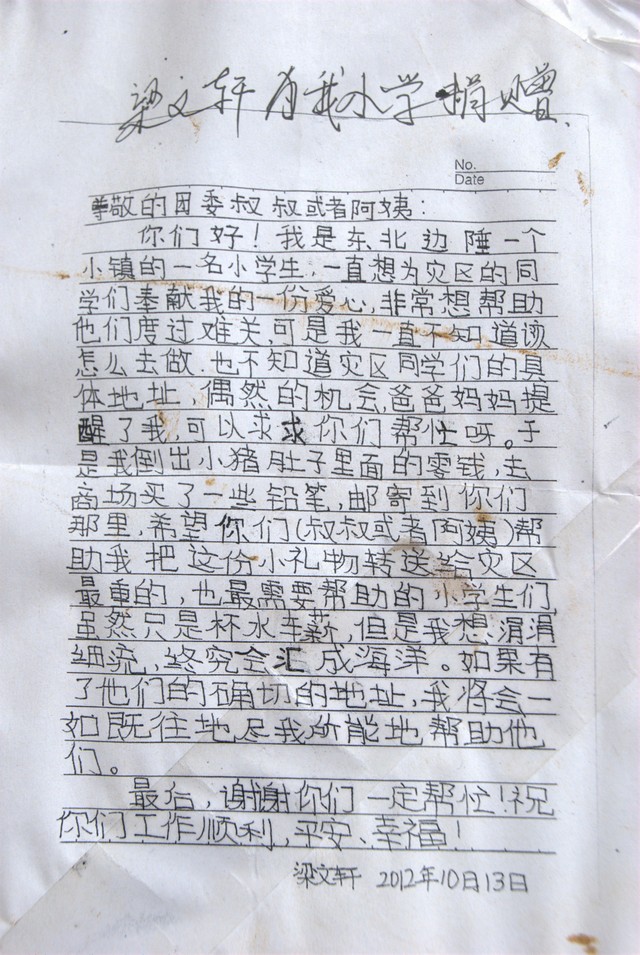 梁文轩为我小学捐赠.
No.
Date
尊敬的团委叔叔或者阿姨：
你们好！我是东北边陲一个
小镇的一名小学生，一直想为灾区的同
学们奉献我的一份爱心，非常想帮助
他们度过难关，可是我一直不知道该
怎么去做，也不知道灾区同学们的具
体地址，偶然的机会，爸爸妈妈提
醒了我，可以求求你们帮忙呀。于
是我倒出小猪肚子里面的零钱，去
商场买了一些铅笔，邮寄到你们
那里，希望你们（叔叔或者阿姨）帮
助我把这份小礼物转送给灾区
最重的，也最需要帮助的小学生们，
虽然只是杯水车薪，但是我想涓涓
细流，终究会汇成海洋。如果有
了他们的确切的地址，我将会一
如既往地尽我所能地帮助他
们。
最后，谢谢你们一定帮忙！祝
你们工作顺利，平安、幸福！
梁文轩 2012年10日13日